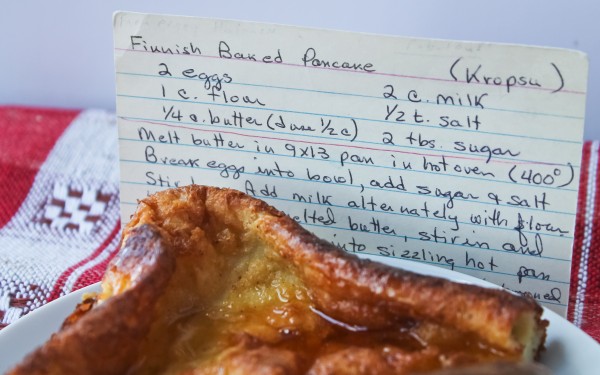 Finnish Baked Pancake (Kropsu)
2 eggs 2 c. milk
1 c. flour 1/2 t. salt
1/4 c. butter (I use 1/2 c) 2 tbs. sugar
Melt butter in 9x13 pan in hot oven (400°)
Break eggs into bowl, add sugar & salt
Add milk alternately with flour
melted butter, stir in and
into sizzling hot pan